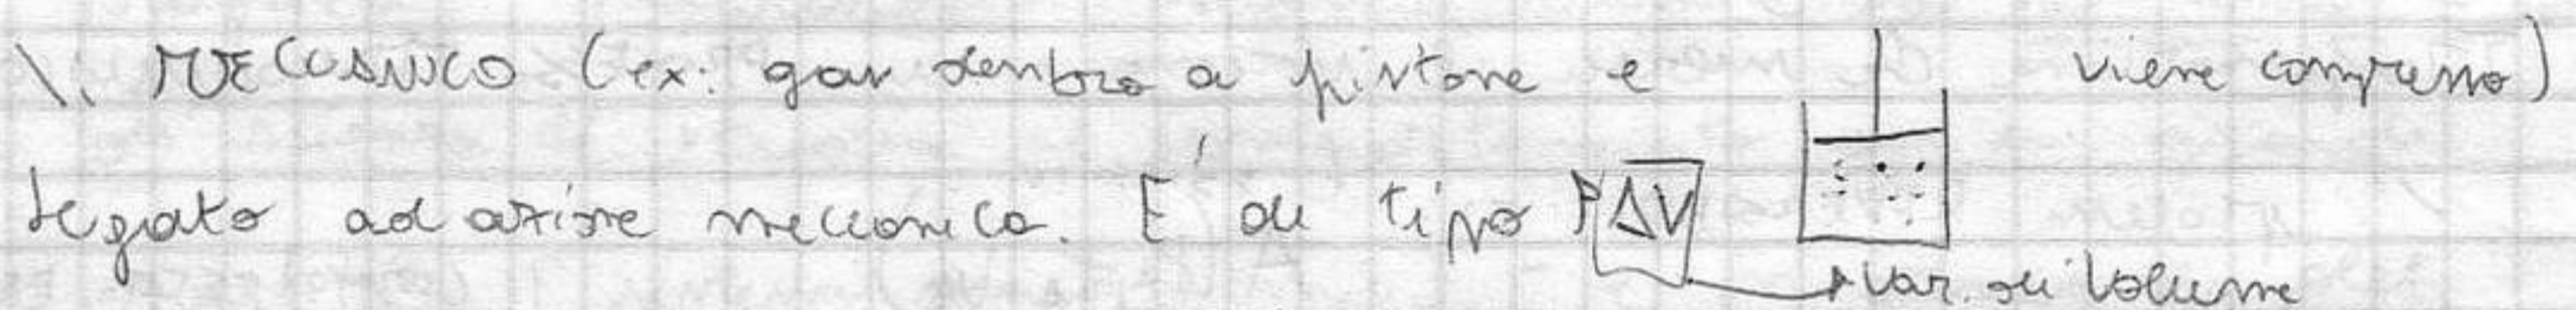 \. MECCANICO (ex: gas dentro a pistone e viene compresso)
legato ad azione meccanica. E' di tipo PΔV
var. di volume